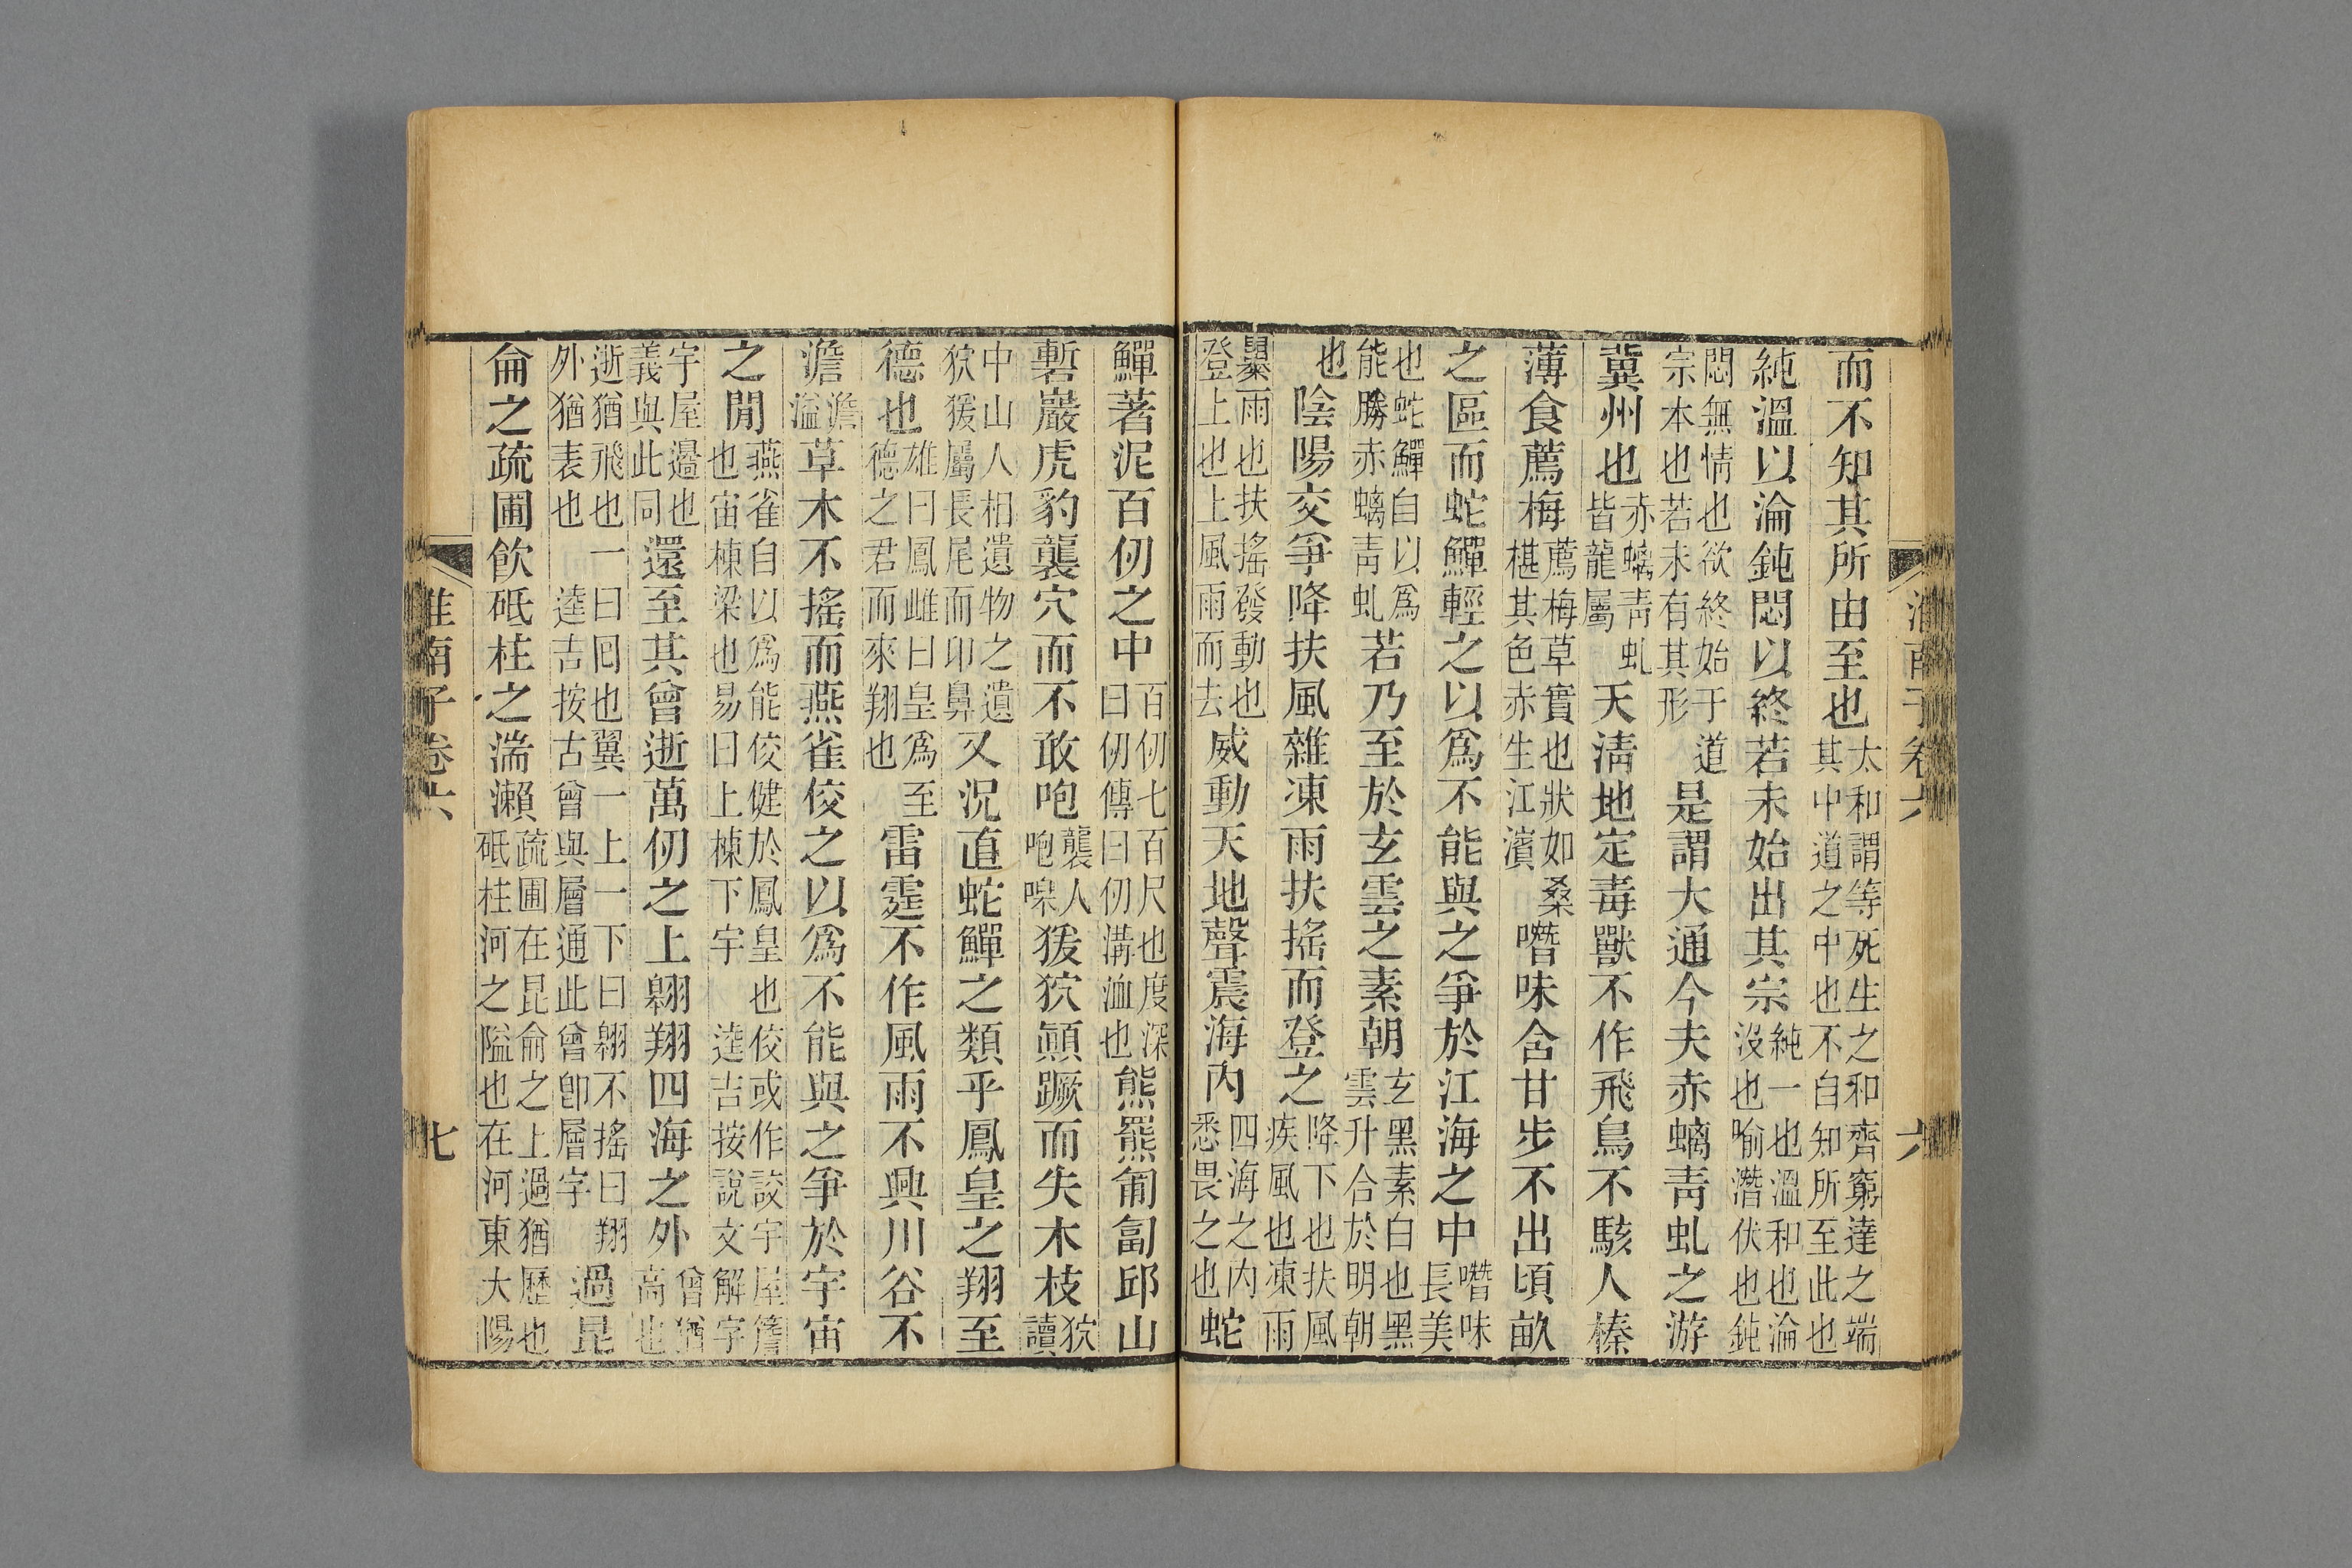 而不知其所由至也太和謂等死生之和齊窮達之端其中道之中也不自知所至此也
純溫以淪鈍悶以終若未始出其宗純一也溫和也淪沒也喻潛伏也鈍
悶無情也欲終始于道宗本也若未有其形是謂大通今夫赤螭青虬之游
冀州也赤螭青虬皆龍屬天清地定毒獸不作飛鳥不駭人榛
薄食薦梅薦梅草實也狀如桑椹其色赤生江濱噆味含甘步不出頃畝
之區而蛇鱓輕之以爲不能與之爭於江海之中噆味長美
也蛇鱓自以爲能勝赤螭青虬若乃至於玄雲之素朝玄黑素白也黑雲升合於明朝
也陰陽交爭降扶風雜凍雨扶搖而登之降下也扶風疾風也凍雨
暴雨也扶搖發動也登上也上風雨而去威動天地聲震海內四海之內悉畏之也蛇
鱓著泥百仞之中百仞七百尺也度深曰仞傳曰仞溝洫也熊羆匍匐邱山
磛巖虎豹襲穴而不敢咆襲人咆嘷猨狖顚蹶而失木枝狖讀
中山人相遺物之遺狖猨屬長尾而卬鼻又況直蛇鱓之類乎鳳皇之翔至
德也雄曰鳳雌曰皇爲至德之君而來翔也雷霆不作風雨不興川谷不
澹澹溢草木不搖而燕雀佼之以爲不能與之爭於宇宙
之閒燕雀自以爲能佼健於鳳皇也佼或作詨宇屋簷也宙棟梁也易曰上棟下宇逵吉按說文解字
宇屋邊也義與此同還至其曾逝萬仞之上翱翔四海之外曾猶高也
逝猶飛也一曰回也翼一上一下曰翱不搖曰翔外猶表也逵吉按古曾與層通此曾卽層字過昆
侖之疏圃飮砥柱之湍瀨疏圃在昆侖之上過猶歷也砥柱河之隘也在河東大陽
淮南子卷六
六
淮南子卷六
七